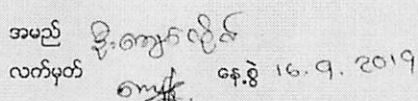 အမည် ဦးကျော်လှိုင်
လက်မှတ် နေ့စွဲ 16.9.2019